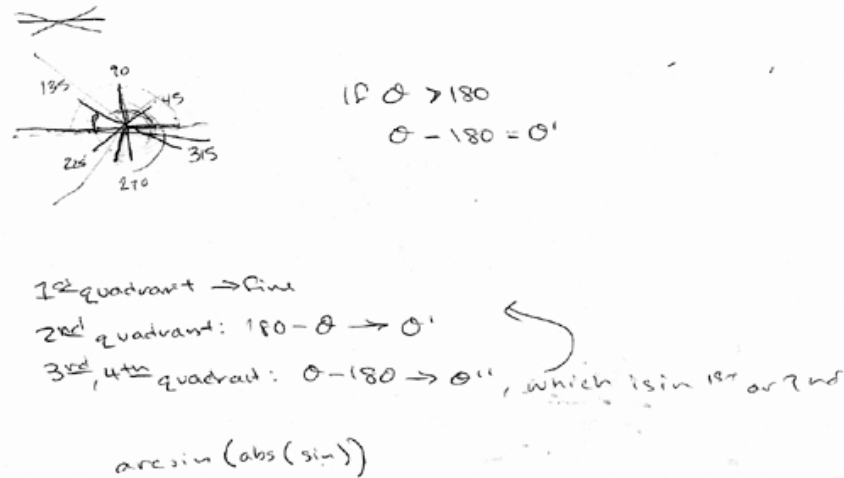 90
135
45
225
315
270
If θ > 180
θ - 180 = θ'
1st quadrant → fine
2nd quadrant: 180 - θ → θ'
3rd, 4th quadrant: θ - 180 → θ'', which is in 1st or 2nd
arcsin(abs(sin))